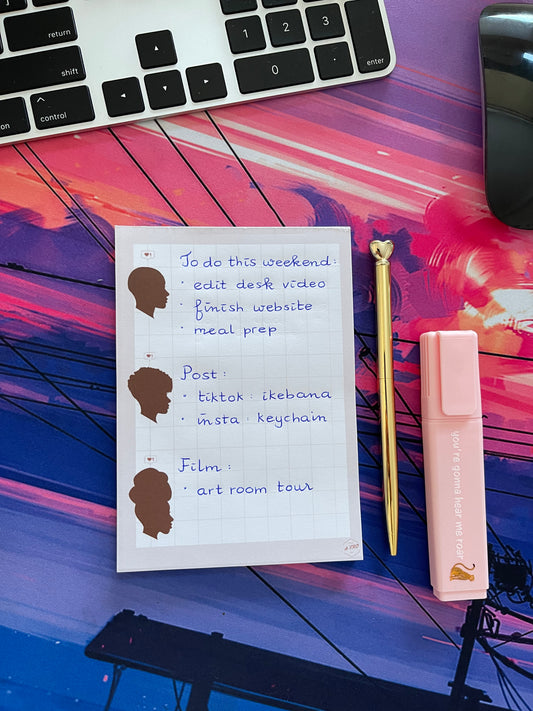 return
shift
control
on
1
2
3
0
.
enter
To do this weekend:
· edit desk video
· finish website
· meal prep
Post:
· tiktok: ikebana
· insta: keychain
Film:
· art room tour
you're gonna hear me roar